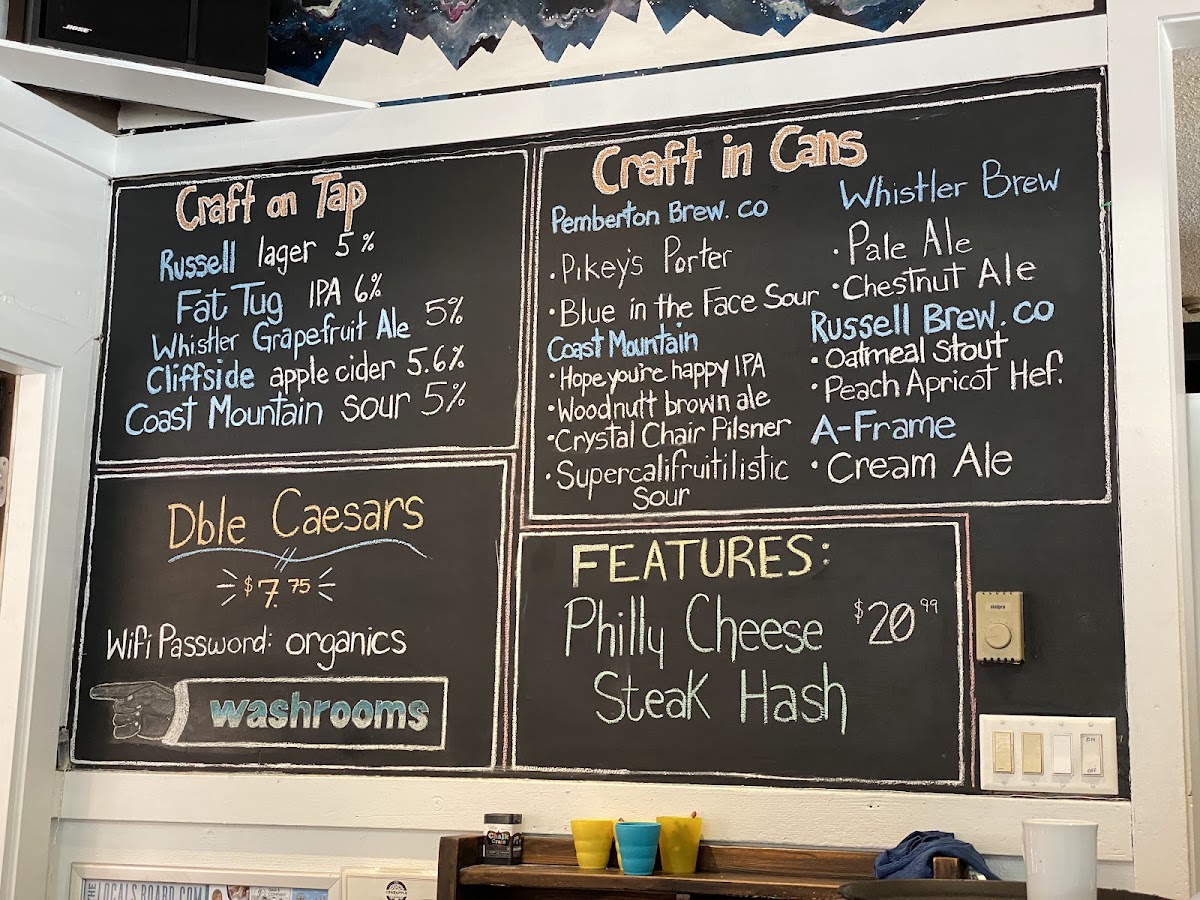 BOSE
Craft on Tap
Russell lager 5%
Fat Tug IPA 6%
Whistler Grapefruit Ale 5%
Cliffside apple cider 5.6%
Coast Mountain sour 5%
Craft in Cans
Pemberton Brew. co
• Pikey's Porter
• Blue in the Face Sour
Coast Mountain
• Hope you're happy IPA
• Woodnutt brown ale
• Crystal Chair Pilsner
• Supercalifruitilistic
sour
Whistler Brew
• Pale Ale
• Chestnut Ale
Russell Brew. co
• Oatmeal Stout
• Peach Apricot Hef.
A-Frame
• Cream Ale
Dble Caesars
$7.75
Wifi Password: organics
washrooms
FEATURES:
Philly Cheese $20.99
Steak Hash
ON
OFF
Chalk
THE
LOCALSBOARD.COM